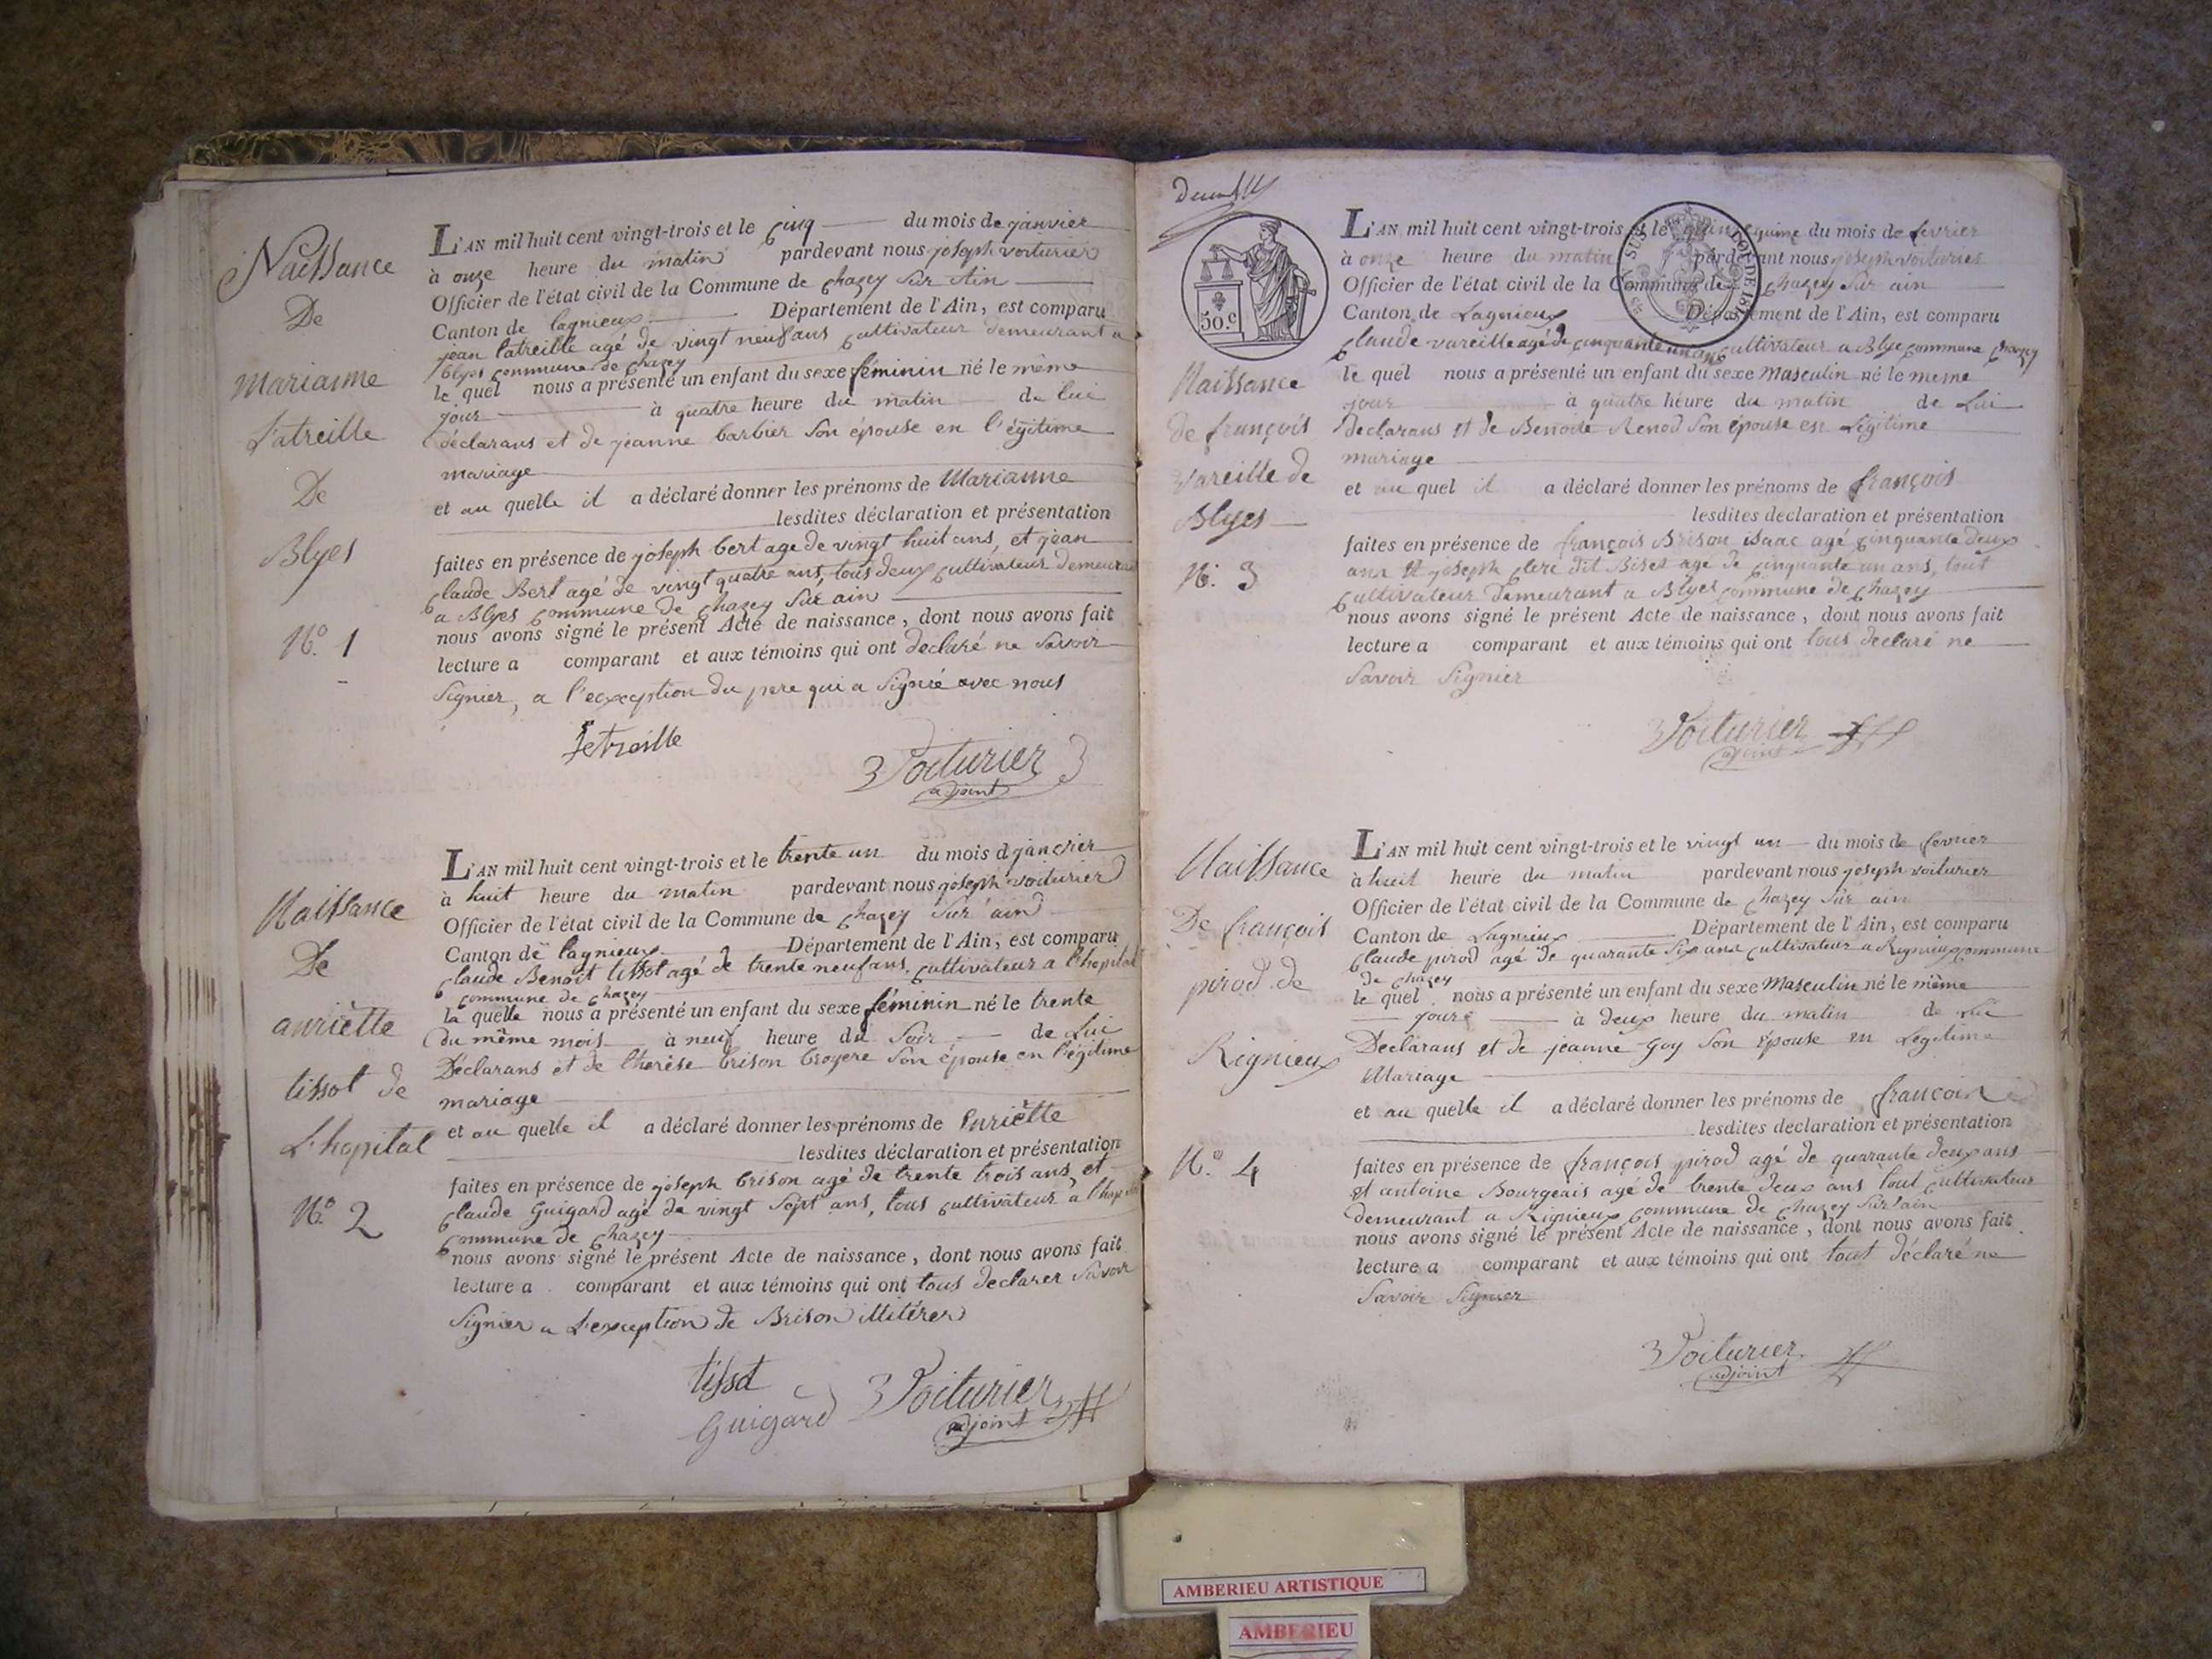 Naissance
De
marianne
Latreille
De
Blyes
N.º 1
L'AN mil huit cent vingt-trois et le cinq du mois de janvier
à onze heure du matin pardevant nous joseph voiturier
Officier de l'état civil de la Commune de chazey sur Ain
Canton de lagnieux Département de l'Ain, est comparu
jean latreille agé de vingt neuf ans cultivateur demeurant a
Blyes commune de chazey
le quel nous a présenté un enfant du sexe féminin né le même
jour à quatre heure du matin de lui
déclarans et de jeanne barbier son épouse en l'égitime
mariage
et au quelle il a déclaré donner les prénoms de Marianne
lesdites déclaration et présentation
faites en présence de joseph bert age de vingt huit ans, et jean
claude Bert agé de vingt quatre ans, tous deux cultivateur demeurant
a Blyes commune de chazey sur ain
nous avons signé le présent Acte de naissance, dont nous avons fait
lecture a comparant et aux témoins qui ont declaré ne savoir
signier, a l'exception du pere qui a signié avec nous
Letreille
Voiturier
adjoint
Naissance
De
anriètte
tissot de
L'hopital
N.º 2
L'AN mil huit cent vingt-trois et le trente un du mois d janvier
à huit heure du matin pardevant nous joseph voiturier
Officier de l'état civil de la Commune de chazey sur ain
Canton de lagnieux Département de l'Ain, est comparu
claude Benoit tissot agé de trente neuf ans, cultivateur a l'hopital
commune de chazey
la quelle nous a présenté un enfant du sexe féminin né le trente
du même mois à neuf heure du soir de Lui
Déclarans et de therèse brison broyere son épouse en l'égitime
mariage
et au quelle il a déclaré donner les prénoms de Enriètte
lesdites déclaration et présentation
faites en présence de joseph brison agé de trente trois ans, et
claude Guigard agé de vingt sept ans, tous cultivateur a l'hopital
commune de chazey
nous avons signé le présent Acte de naissance, dont nous avons fait
lecture a comparant et aux témoins qui ont tous declarer savoir
signier a L'exception de Brison illitérer
tissot
Guigard
Voiturier
adjoint
50.c
Naissance
de françois
vareille de
Blyes
N.º 3
L'AN mil huit cent vingt-trois et le quinze du mois de fevrier
à onze heure du matin pardevant nous joseph voiturier
Officier de l'état civil de la Commune de chazey sur ain
Canton de Lagnieux Département de l'Ain, est comparu
claude vareille agé de cinquante un ans cultivateur a Blye commune chazey
le quel nous a présenté un enfant du sexe Masculin né le même
jour à quatre heure du matin de Lui
declarans et de Benoite Renod son épouse en Légitime
mariage
et au quel il a déclaré donner les prénoms de françois
lesdites déclaration et présentation
faites en présence de françois Brison isaac agé cinquante deux
ans et joseph clerc dit Biset age de cinquante un ans, tout
cultivateur demeurant a Blyes commune de chazey
nous avons signé le présent Acte de naissance, dont nous avons fait
lecture a comparant et aux témoins qui ont tous declaré ne
savoir signier
Voiturier
adjoint
Naissance
De françois
pirod de
Rignieux
N.º 4
L'AN mil huit cent vingt-trois et le vingt un du mois de fevrier
à huit heure du matin pardevant nous joseph voiturier
Officier de l'état civil de la Commune de chazey sur ain
Canton de Lagnieux Département de l'Ain, est comparu
claude pirod agé de quarante six ans cultivateur a Rignieux commune
de chazey
le quel nous a présenté un enfant du sexe Masculin né le même
jour à deux heure du matin de Lui
Declarans et de jeanne Goy son épouse en Legitime
Mariage
et au quelle il a déclaré donner les prénoms de françois
lesdites déclaration et présentation
faites en présence de françois pirod agé de quarante deux ans
et antoine Bourgeais agé de trente deux ans tout cultivateur
demeurant a Rignieux commune de chazey sur ain
nous avons signé le présent Acte de naissance, dont nous avons fait
lecture a comparant et aux témoins qui ont tout déclaré ne
savoir signier
Voiturier
adjoint
AMBERIEU ARTISTIQUE
AMBERIEU